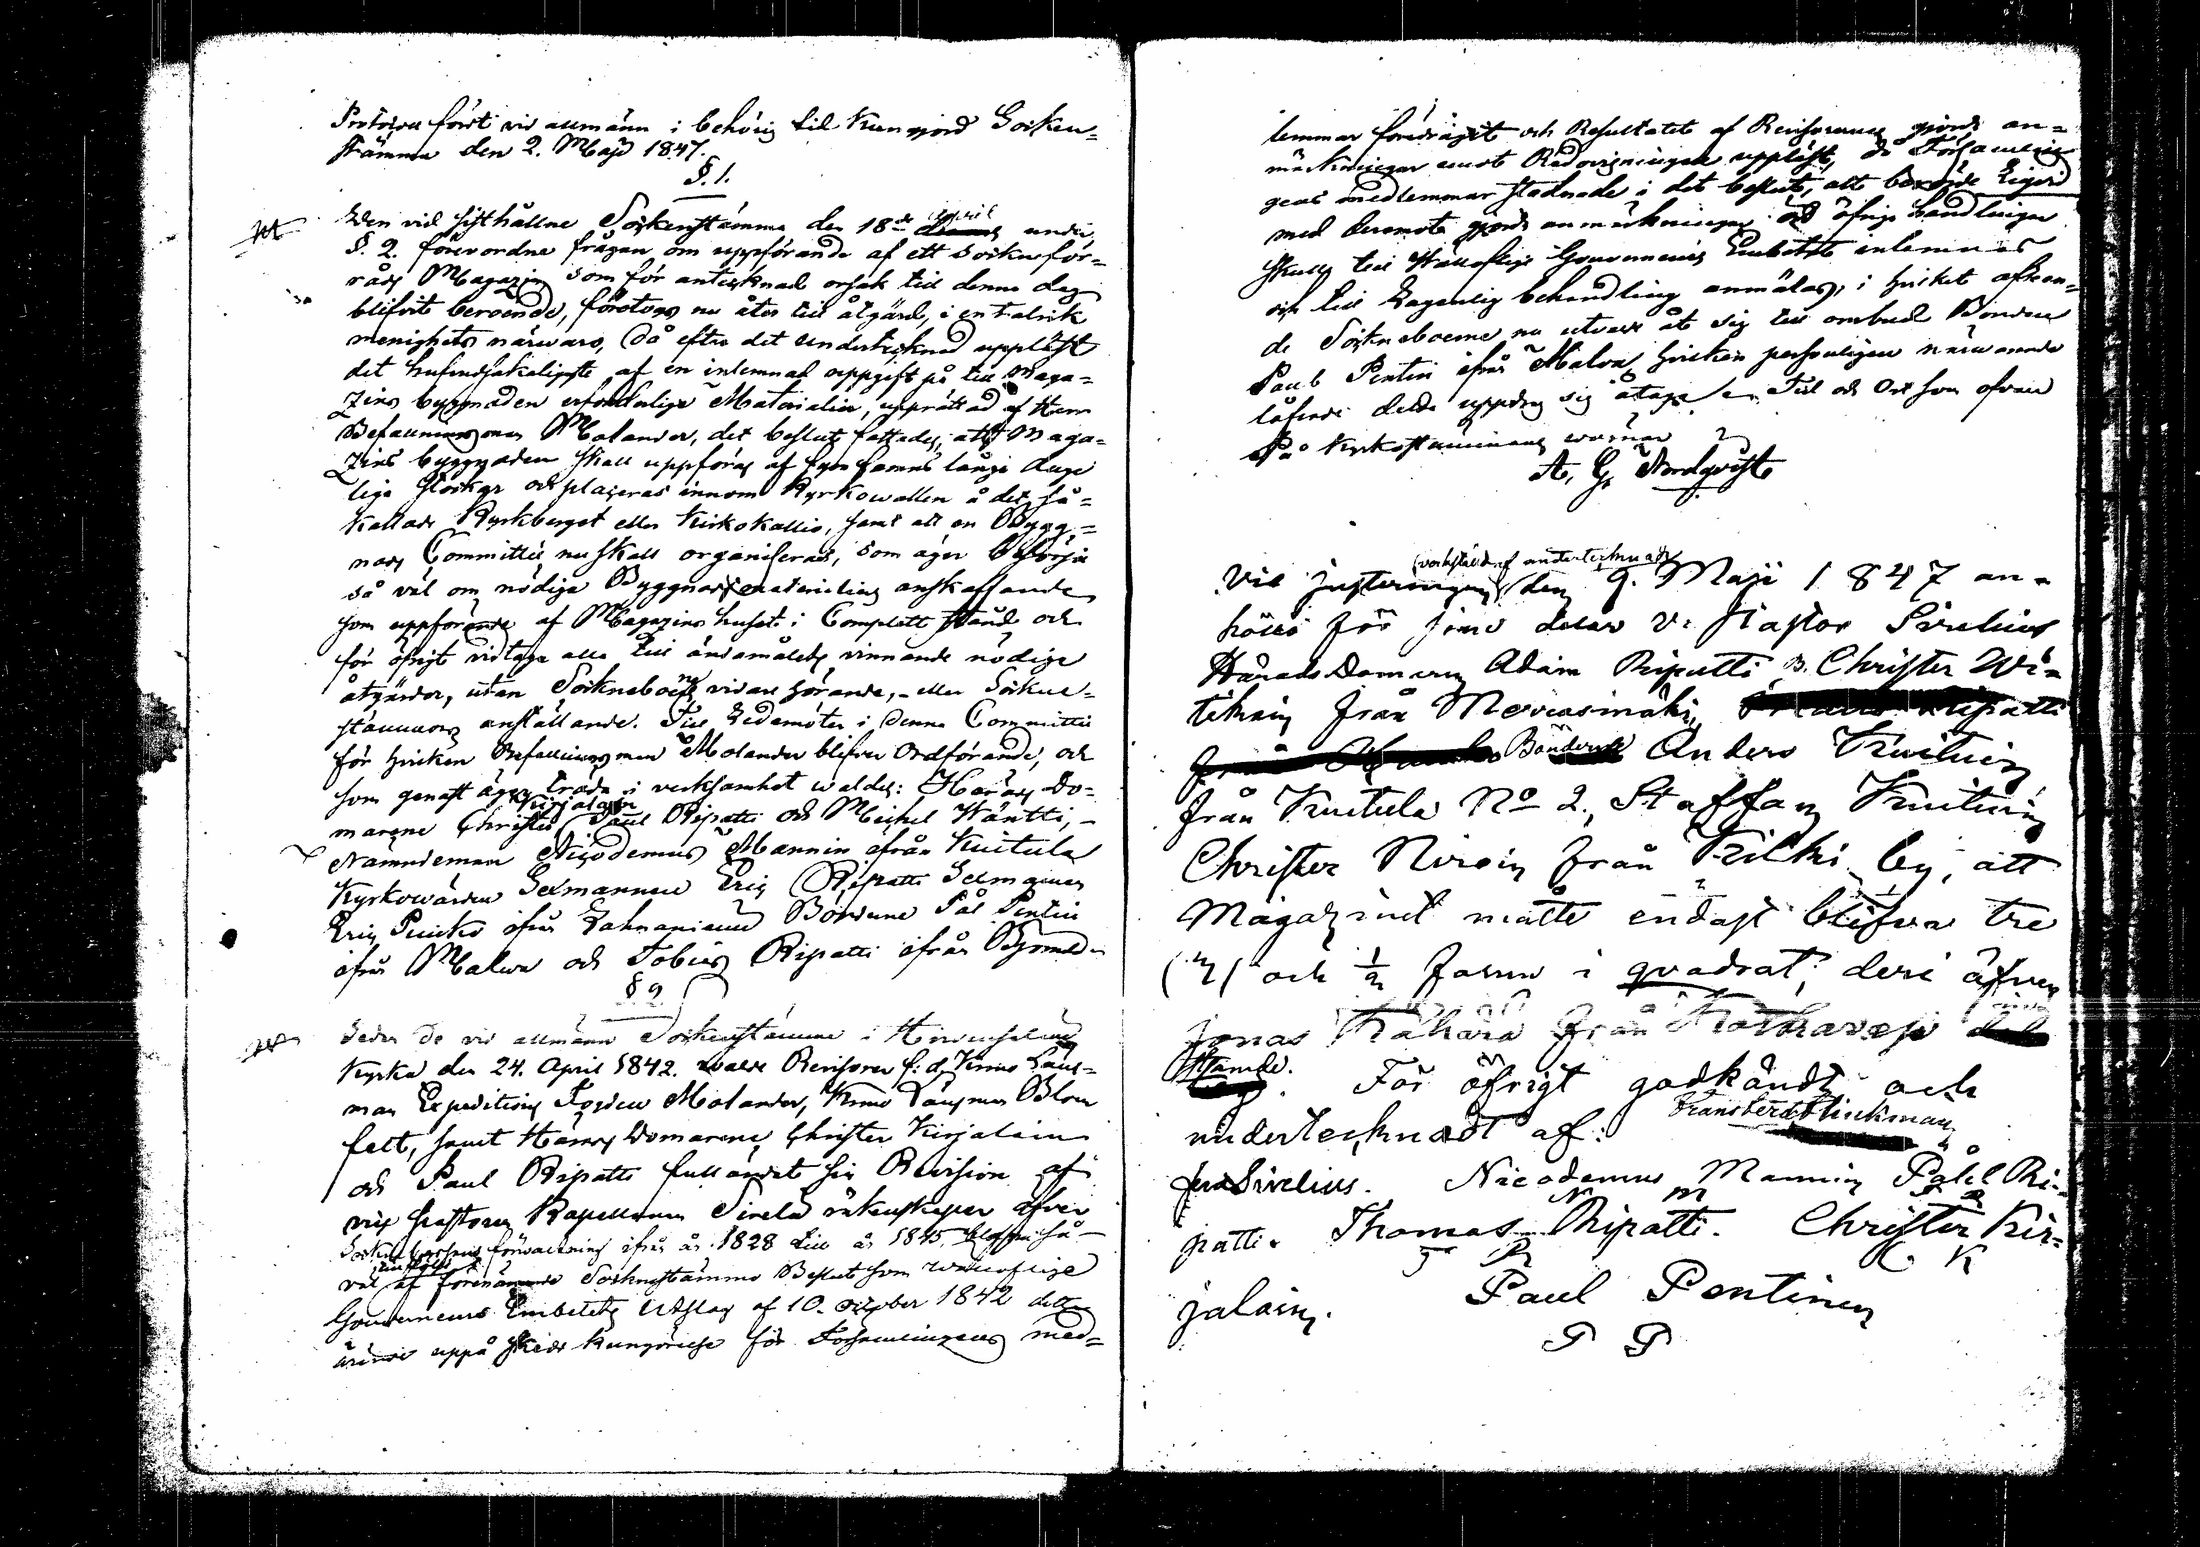 Protocoll fördt vid allmänn i behörig tid kungjord Socken-
stämma den 2. Maji 1847.
§. 1.
Den vid sisthållne Sockenstämma den 18de April under
§. 2. förevordne frågan om uppförande af ett Sockneför-
råds Magazin som för antecknad orsak till denna dag
blifvit beroende, företogs nu åter till åtgärd, i en talrik
menighets närwaro, då efter det undertecknad uppläst
det hufvudsakeligaste af en inlemnad uppgift på till Maga-
zins byggnaden erforderlige Materialier, upprättad af Herr
Befallningsman Molander, det beslut fattades, att Maga-
zins byggnaden skall uppföras af fyra famns långe duge-
lige stockar och placeras innom Kyrkowallen å det så-
kallade Kyrkberget eller Kirkokallio, samt att en Bygg-
nads Committée nu skall organiseras, som äger besörja
så väl om nödiga Byggnads materialiers anskaffande
som uppförande af Magazins huset i Complett stånd och
för öfrigt vidtaga alla till ändamålets vinnande nödiga
åtgärder, utan Sockneboernes vidare hörande, eller Sockne-
stämmors anställande. Till Ledamöter i denna Committée
för hvilken Befallningsman Molander blifver Ordförande, och
som genast äger träda i verksamhet waldes: Härads Do-
marene Christer Kirjalain Paul Ripatti och Michel Häntti,
Nämndeman Nicodemus Mannin ifrån Kuitula
Kyrkowärden Sexmannen Eric Ripatti Sexmannen
Eric Puicko ifrån Bönderne Pål Pentin
ifrån Malva och Tobias Ripatti ifrån
§ 2
Sedan de vid allmänn Sockenstämma i Hirvensalmi
Kyrka den 24. April 1842. valde Revisorer f. d. Krono Läns-
man Expeditions Fogden Molander, Krono Länsman Blom
felt, samt Härads Domarene Christer Kirjalain
och Paul Ripatti fulländat sin Revision af
vice Pastoren Kapellanen Sirelii räkenskaper öfver
förvaltning ifrån år 1828 till år 1845, så
väl till följe af förenämnde Socknestämmo Beslut som
Gouverneurs Embetets Utslag af 10. October 1842 detta
ärende uppå skedd kungörelse för Församlingens med-
lemmar föredragit och Resultatet af Revisorernes gjorde an-
märkningar emot Redovisningen uppläst, då Församlin-
gens medlemmar stadnade i det beslut, att
med deremote gjorde anmärkningar och öfrige handlingar
skulle till Wälloflige Gouverneurs Embetet inlemnas
och till Lagenlig behandling anmälas, i hvilket afseen-
de Sockneboerne nu utvalde åt sig till ombud Bonden
Paul Pentin ifrån Malva, hvilken personligen närwarande
låfvade detta uppdrag sig åtaga. Tid och Ort som ofvan
På Kyrkostämmans wägnar
A. G. Nordqvist
Vid justeringen (verkstäld af undertecknade) den 9. Maji 1847 an-
höllo för sine delar V. Pastor Sirelius
Härads Domaren Adam Ripatti, B. Christer Wi-
tikain från Merrasmäki,
Bönderne Anders Kuituin
från Kuitula No 2, Staffan Kuituin
Christer Niroin från Kilki by, att
Magazinet måtte endast blifva tre
(3) och ½ famn i qvadrat; deri äfven
Jonas Kähärä från Korkavesi
stämde. För öfrigt godkändt och
undertecknadt af: Frans Ferd. Flinkman
Sirelius. Nicodemus Mannin Påhl Ri-
N M P R
patti. Thomas Ripatti. Christer Kir-
T R C K
jalain. Paul Pentinen
P P